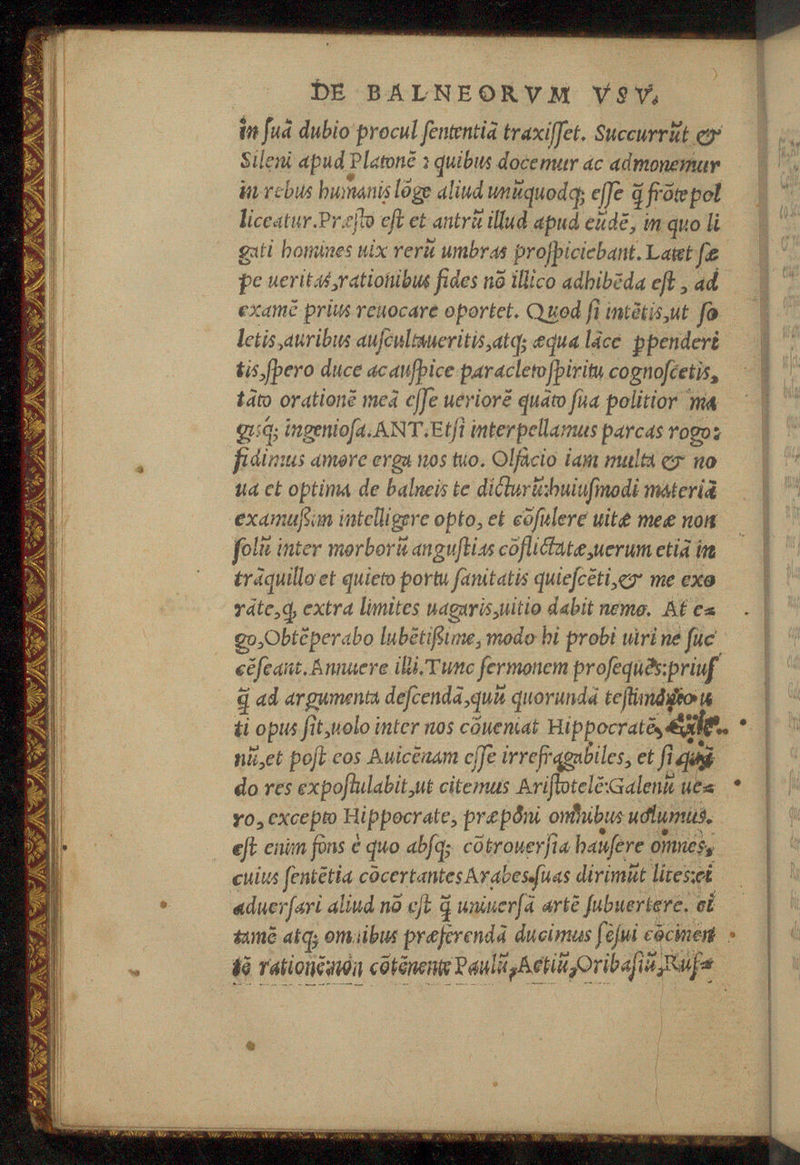 DE BALNEORVM VSV.
in ſuã dubio procul ſententiã traxiſſet. Succurrũt &
Sileni apud Platonẽ : quibus docemur ac admonemur
in rebus humanis lõge aliud unũquodq; eſſe q̃ frõte pol
liceatur. Præſto eſt et antrũ illud apud eũdẽ, in quo li
gati homines uix rerũ umbras proſpiciebant. Latet ſæ
pe ueritas, rationibus fides nõ illico adhibẽda eſt , ad
examẽ prius reuocare oportet. Quod ſi intẽtis, ut ſo
letis, auribus auſcultaueritis, atq; æqua lãce ppenderi
tis, ſpero duce ac auſpice paracleto ſpiritu cognoſcetis,
tãto orationẽ meã eſſe ueriorẽ quãto ſua politior ma
giſq; ingenioſa. ANT. Etſi interpellamus parcas rogo:
fidimus amore erga nos tuo. Olfacio iam multa & no
ua et optima de balneis te dicturũ: huiuſmodi materiã
examuſsim intelligere opto, et cõſulere uitæ meæ non
ſolũ inter morborũ anguſtias cõflictatæ, uerum etiã in
trãquillo et quieto portu ſanitatis quieſcẽti, & me exo
rãte, q, extra limites uagaris, uitio dabit nemo. AE ca
go, Obtẽperabo lubẽtiſsime, modo hi probi uiri ne ſuc
cẽſeant. Annuere illi. Tunc ſermonem proſequẽs: priuſ
q̃ ad argumenta deſcendã, quũ quorundã
ti opus ſit, uolo inter nos cõueniat Hippocratẽ,
nũ, et poſt eos Auicẽnam eſſe irrefragabiles, et ſi
do res expoſtulabit, ut citemus Ariſtotelẽ: Galenũ ue=
ro, excepto Hippocrate, præpõni omnibus uolumus.
eſt enim fons è quo abſq; cõtrouerſia hauſere omnes,
cuius ſentẽtia cõcertantes Arabes ſuas dirimũt lites: et
aduerſari aliud nõ eſt q̃ uniuerſã artẽ ſubuertere. ei
tamẽ atq; omnibus præferendã ducimus ſẽſui cõcinen
tẽ cõtẽnente Paulũ, Aetiũ, Oribaſiũ, Rufu=